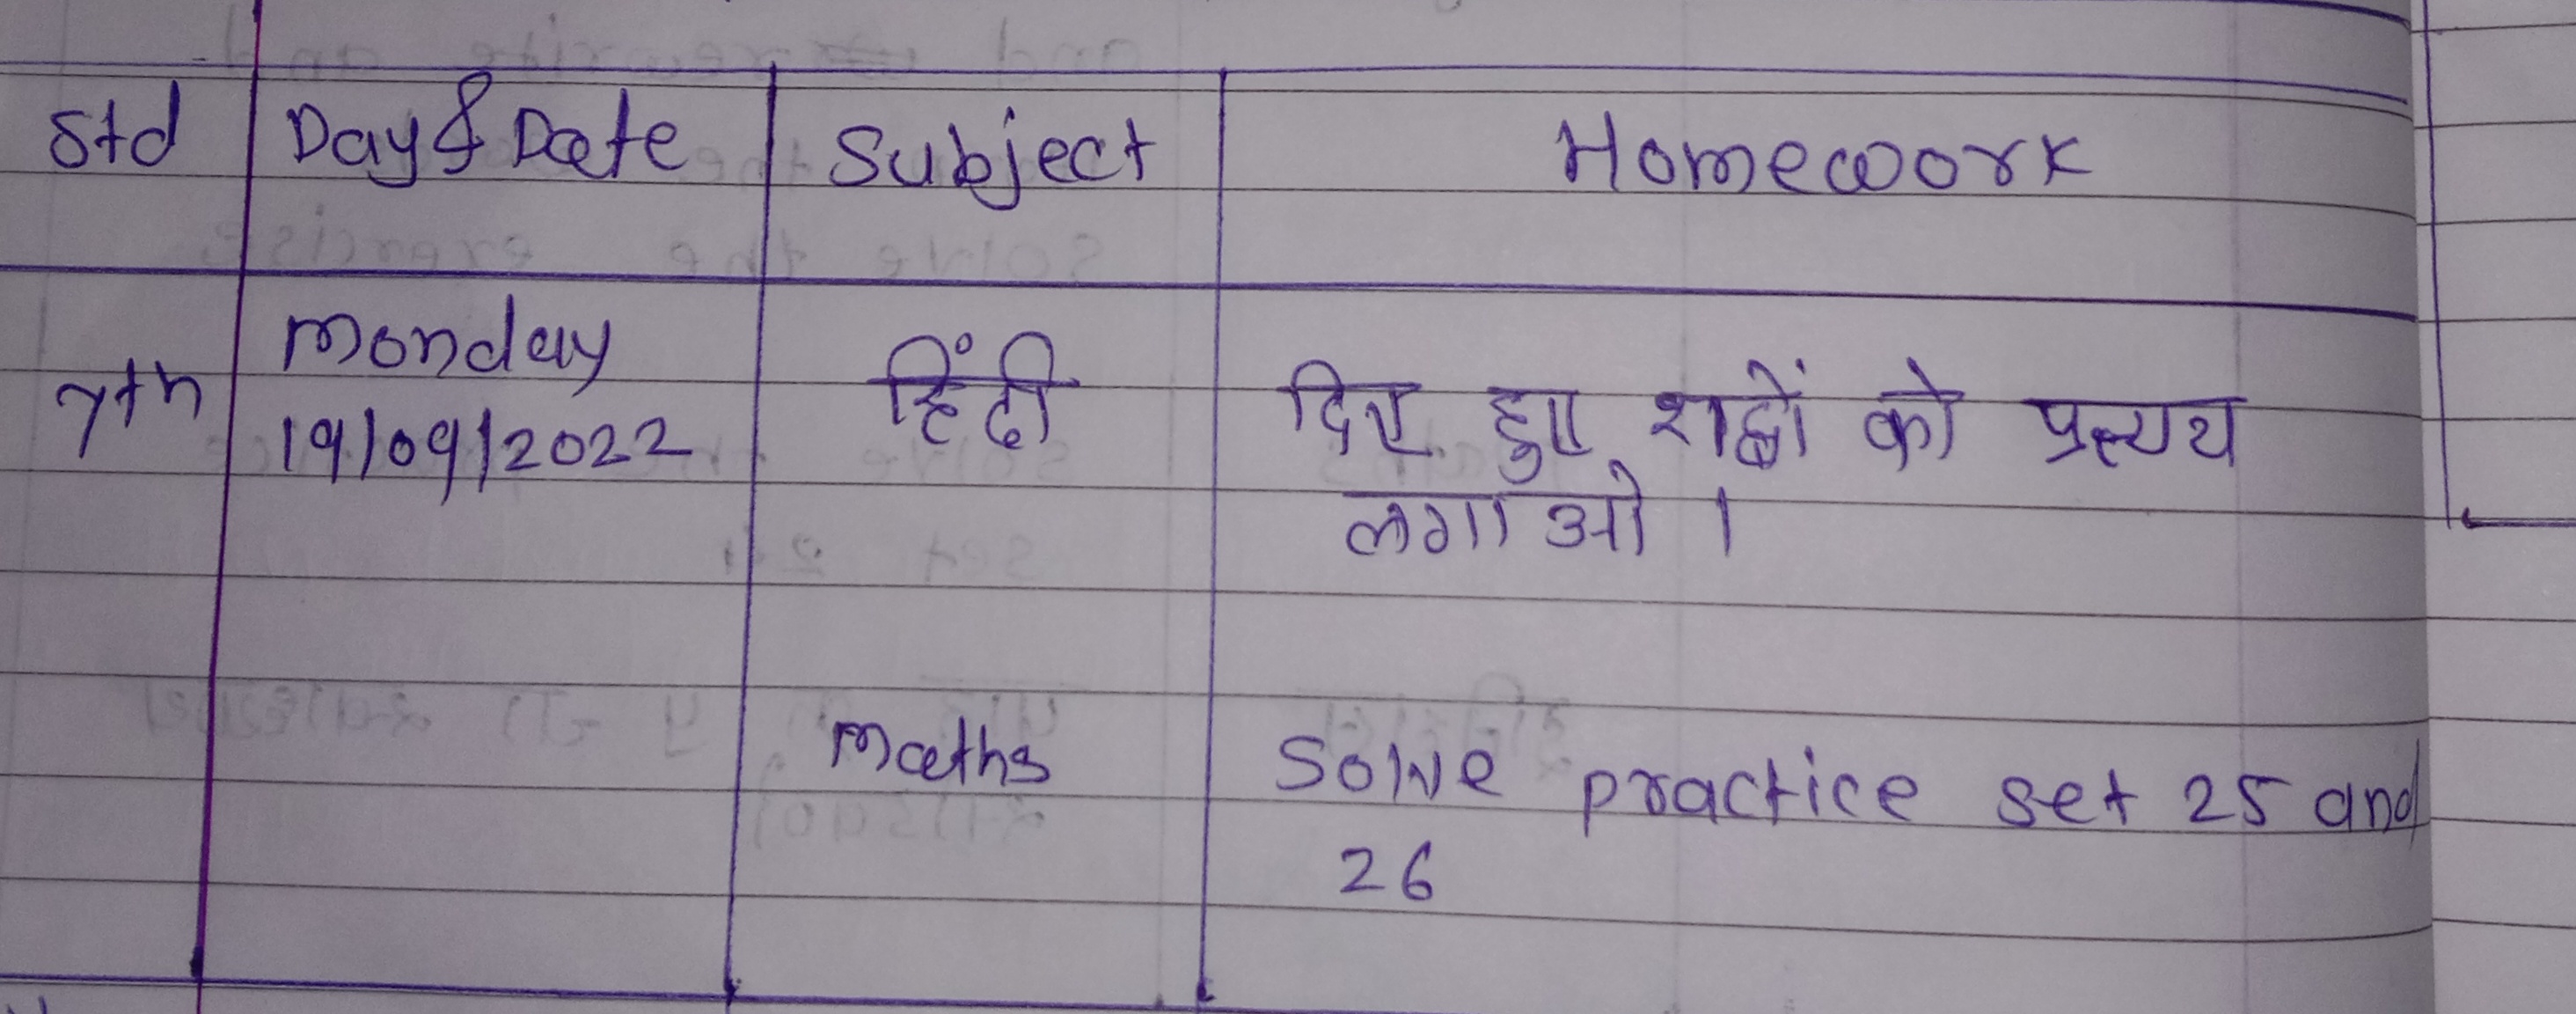 Std Day & Date Subject Homework
Monday
7th हिंदी दिए हुए शब्दों को प्रत्यय
19/09/2022
लगाओ ।
Maths Solve practice set 25 and
26